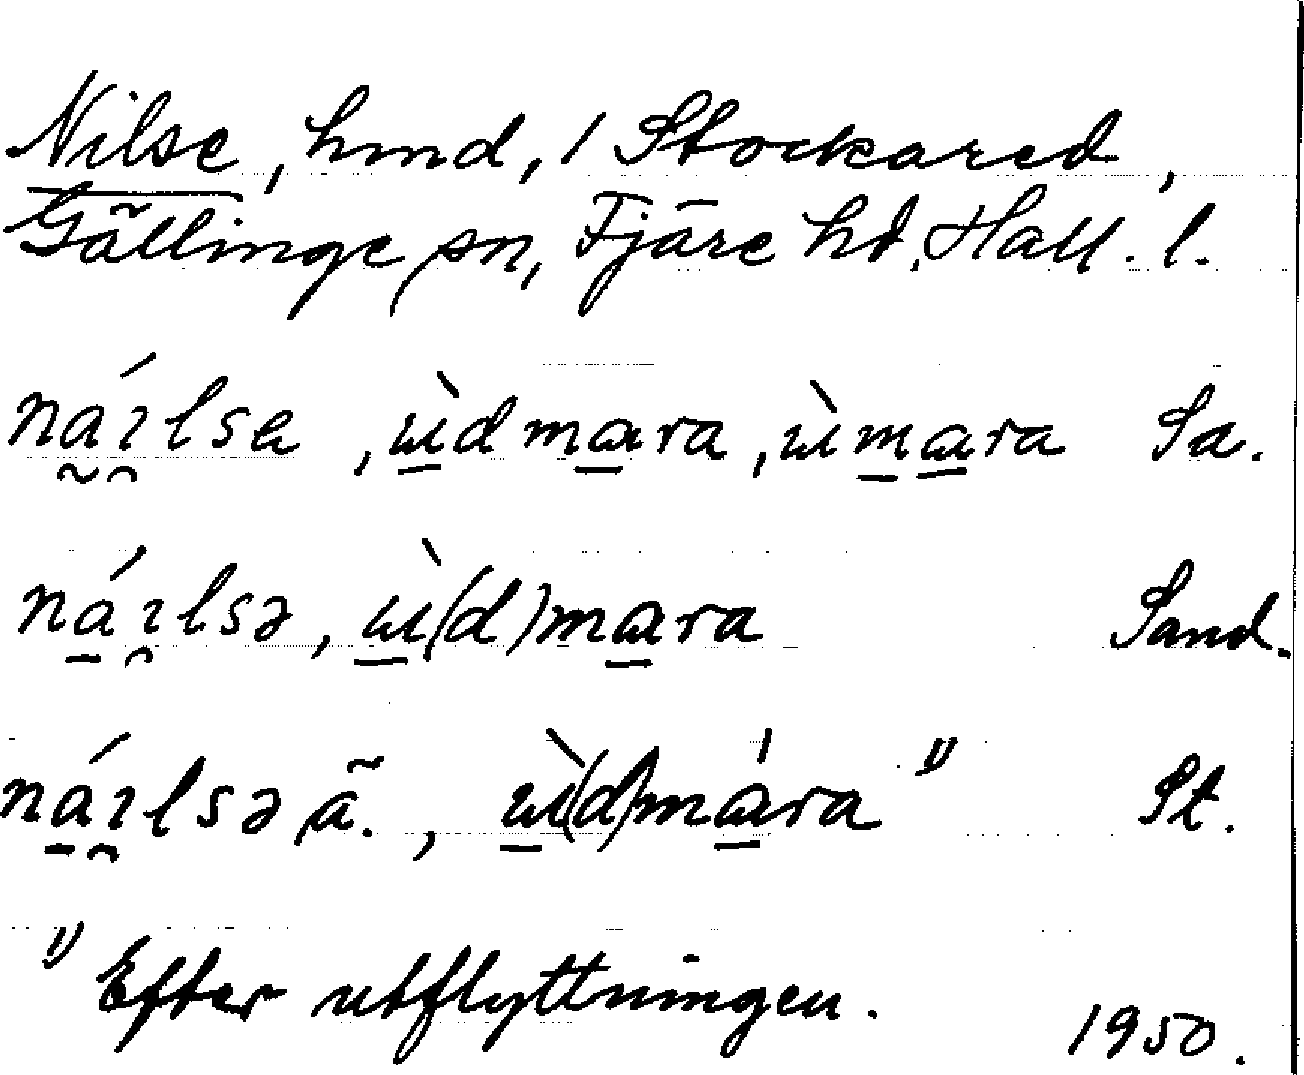 Nilse, hmd, 1 Stockared,
Gällinge sn, Fjäre hd, Hall. l.
náılsa, ɯ̀dmara, ɯ̀mara Sa.
náılsə, ɯ̀(d)mara Sand.
náılsə ä., ɯ̀(d)mára 1) St.
1) Efter utflyttningen.
1950.